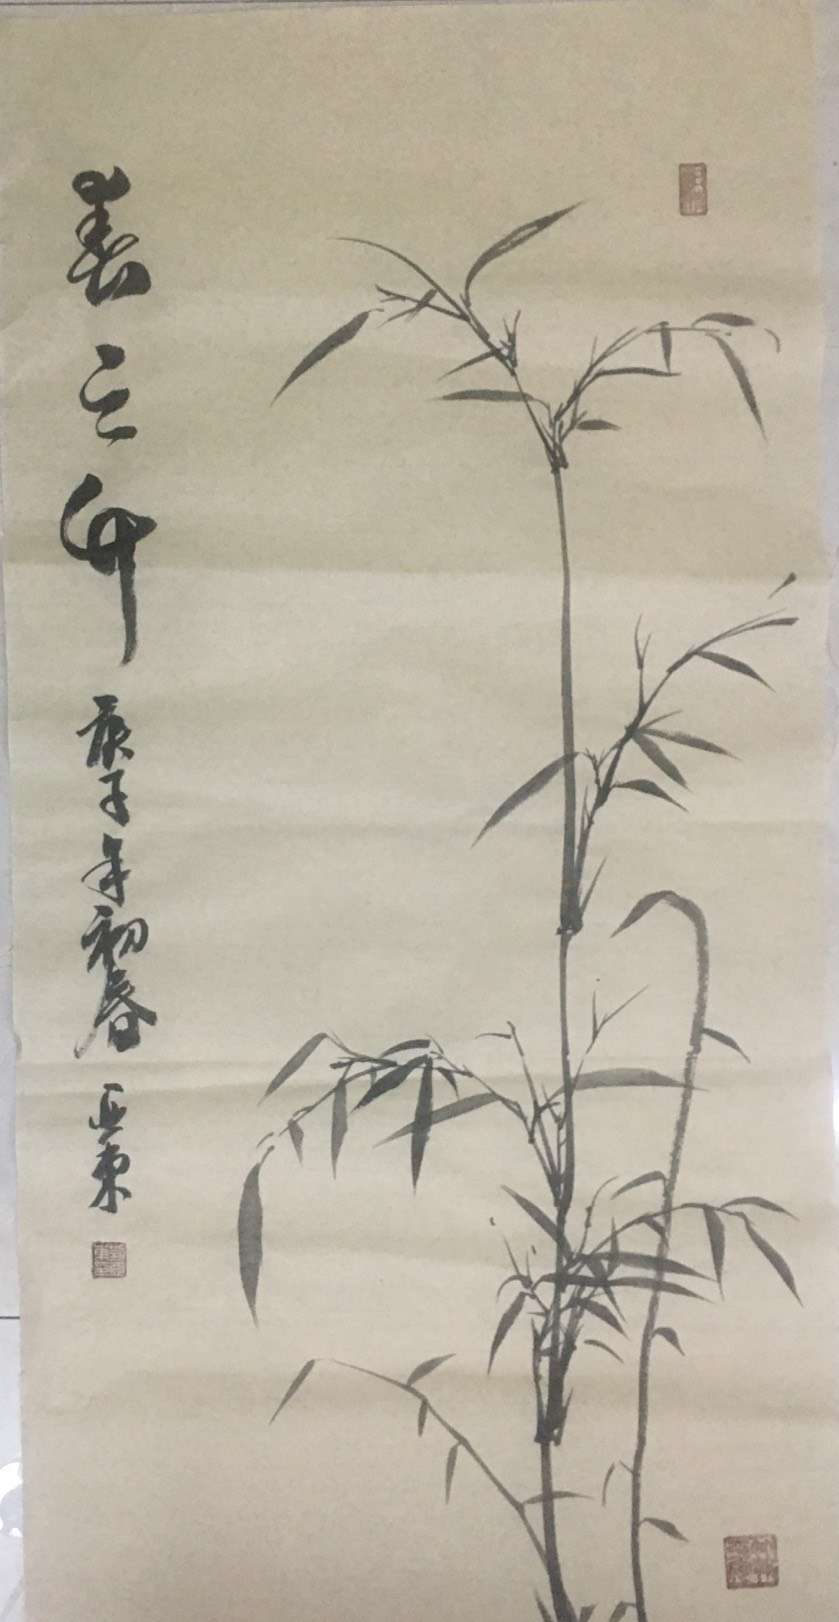 春之竹
庚子年初春 亚东